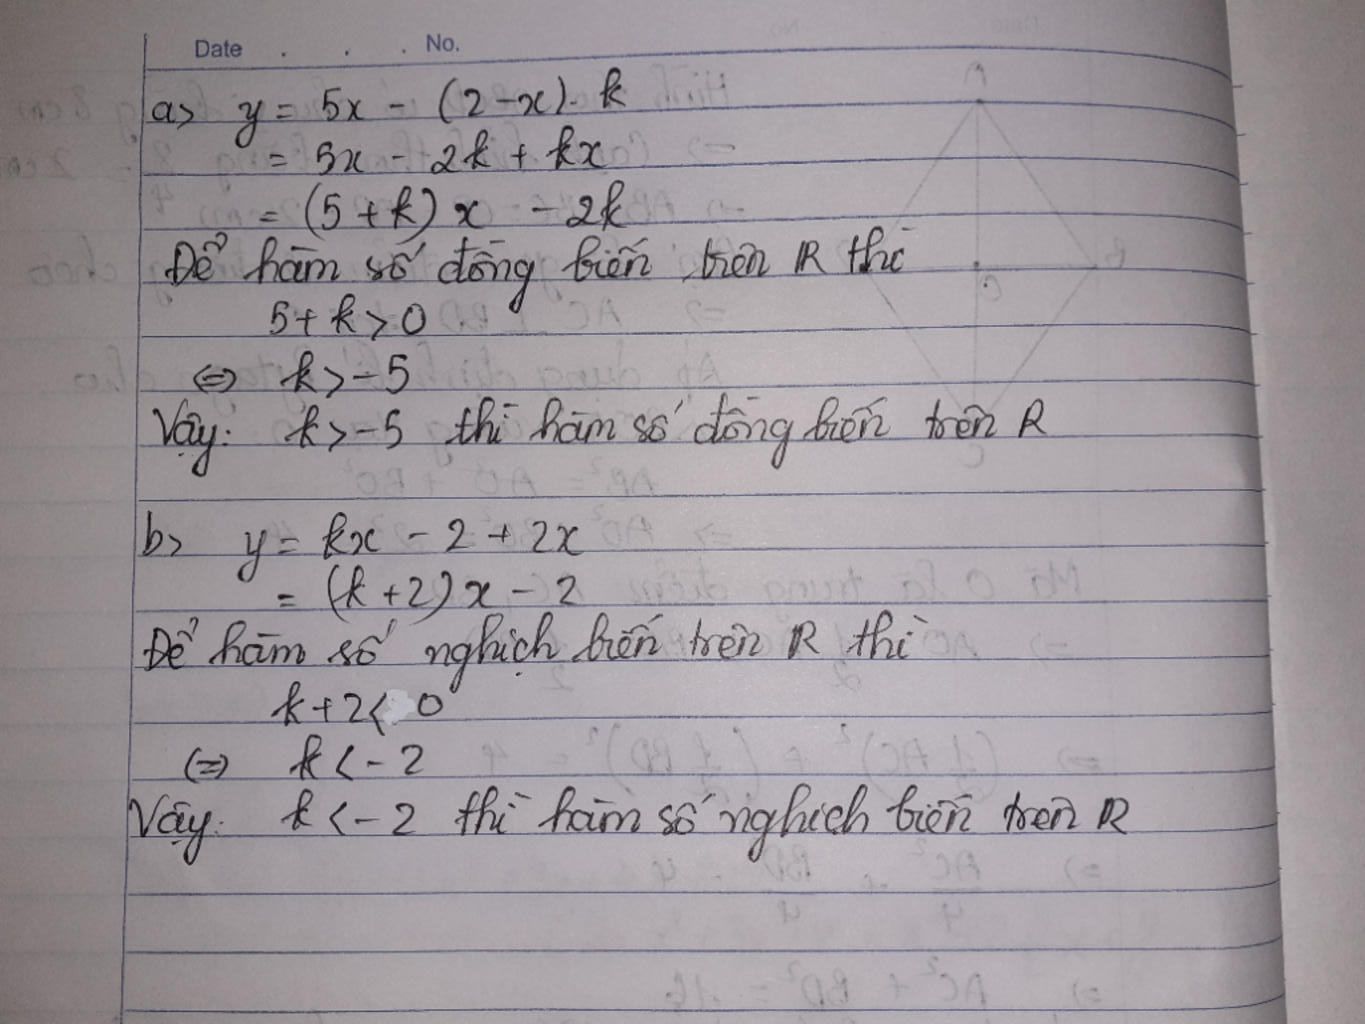 Date . . . No.
a> y = 5x - (2-x). k
= 5x - 2k + kx
= (5+k) x - 2k
Để hàm số đồng biến trên R thì
5+k>0
⇔ k>-5
Vậy: k>-5 thì hàm số đồng biến trên R
b> y = kx - 2 + 2x
= (k+2)x - 2
Để hàm số nghịch biến trên R thì
k+2< 0
(=) k < -2
Vậy: k < -2 thì hàm số nghịch biến trên R